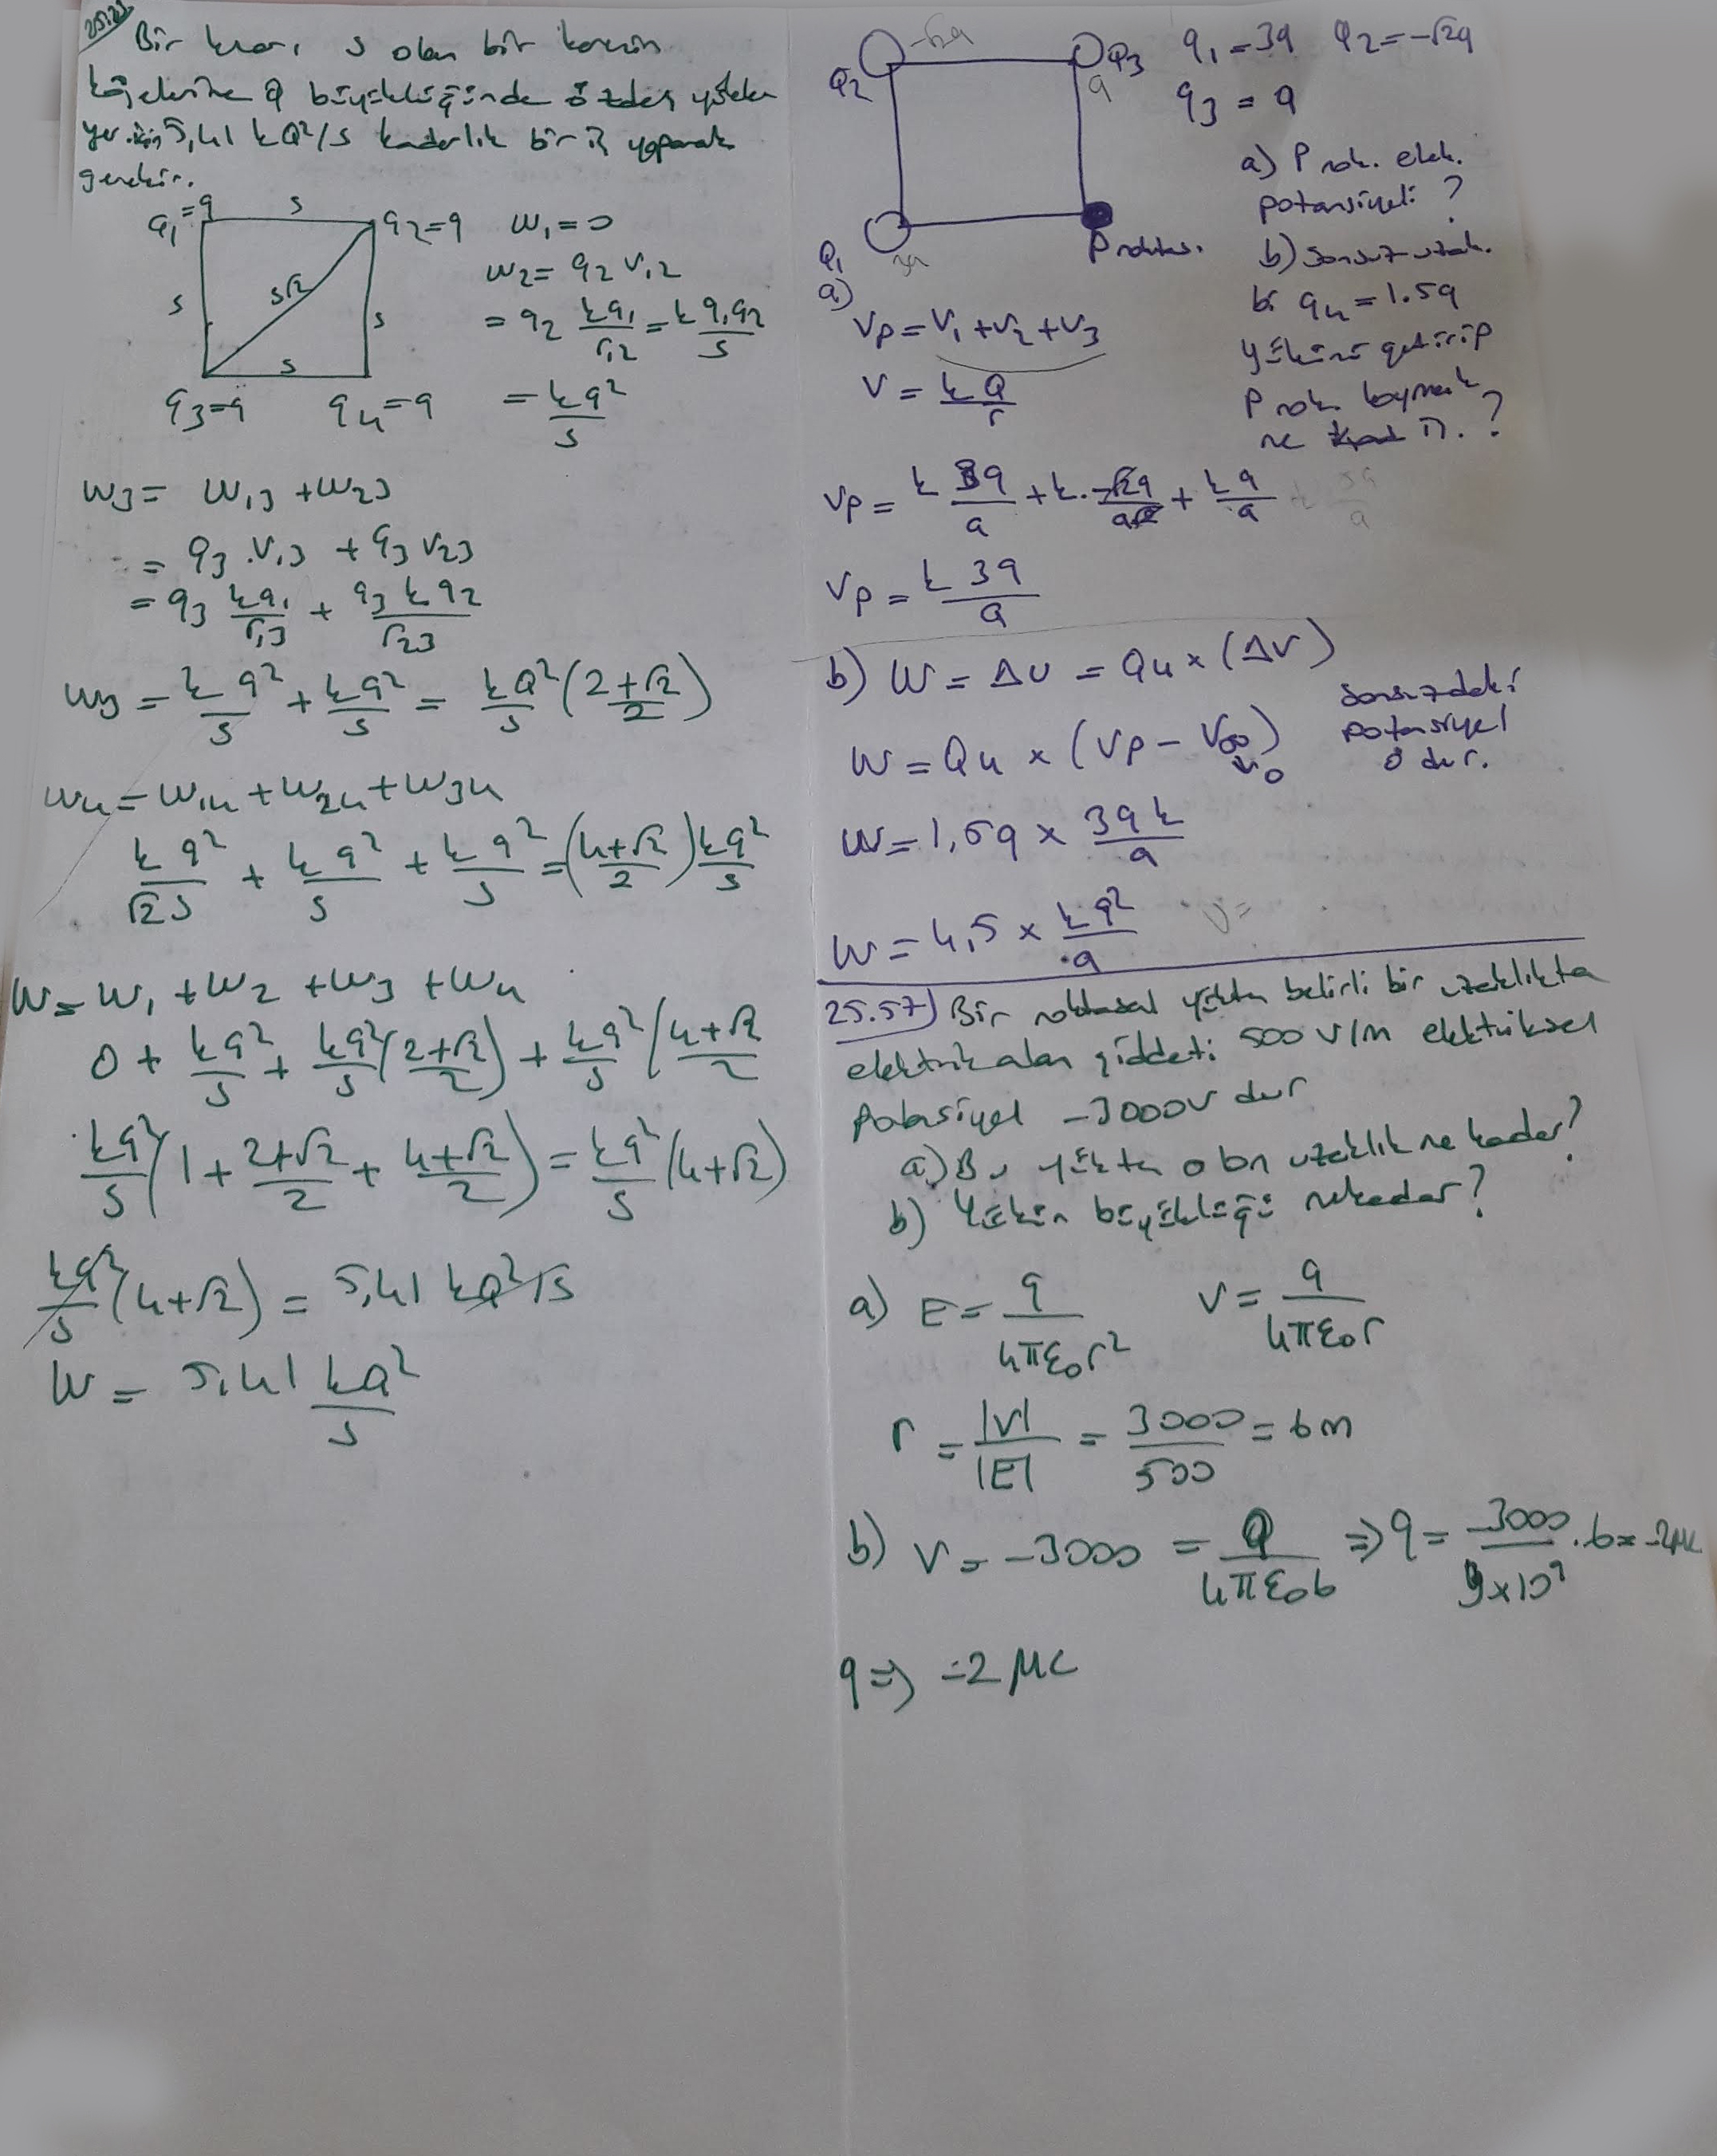 25.23
Bir kenarı s olan bir karenin
köşelerine Q büyüklüğünde özdeş yükler
yer. için 5,41 kQ²/s kadarlık bir iş yapmak
gerekir.
q₁=q s q₂=q
s s√2 s
s
q₃=q q₄=q
W₁=0
W₂= q₂ V₁₂
= q₂ kq₁/r₁₂ = k q₁q₂/s
= kq²/s
W₃= W₁₃ + W₂₃
= q₃ . V₁₃ + q₃ V₂₃
= q₃ kq₁/r₁₃ + q₃ k q₂/r₂₃
W₃ = k q²/s + kq²/s = kQ²/s (2+√2/2)
W₄ = W₁₄ + W₂₄ + W₃₄
k q²/√2s + k q²/s + k q²/s = (4+√2/2) kq²/s
W= W₁ + W₂ + W₃ + W₄
0 + kq²/s + kq²/s (2+√2/2) + kq²/s (4+√2/2
kq²/s (1 + 2+√2/2 + 4+√2/2) = kq²/s (4+√2)
kq²/s (4+√2) = 5,41 kQ²/s
W = 5,41 kQ²/s
-√2q
Q₂ Q₃
q
Q₁ 3q P noktası.
q₁ = 3q q₂ = -√2q
q₃ = q
a) P nok. elek.
potansiyeli ?
b) sonsuz uzak.
bir q₄ = 1.5q
yükünü getirip
P nok. koymak
ne kad iş. ?
a)
Vp = V₁ + V₂ + V₃
V = kQ/r
Vp = k 3q/a + k. -√2q/a√2 + kq/a
Vp = k 3q/a
b) W = ΔU = Q₄ x (ΔV)
W = Q₄ x (Vp - V∞) 0
sonsuzdaki
potansiyel
0 dır.
W = 1,5q x 3qk/a
W = 4,5 x kq²/a
V=
25.57) Bir noktasal yükten belirli bir uzaklıkta
elektrik alan şiddeti 500 V/m elektriksel
Potansiyel -3000V dur
a) Bu yükten olan uzaklık ne kadar?
b) Yükün büyüklüğü nekadar?
a) E = q/4πε₀r² V = q/4πε₀r
r = |V|/|E| = 3000/500 = 6m
b) V = -3000 = Q/4πε₀6 ⇒ q = -3000/9x10⁹ . 6 = -2μC
q ⇒ -2 μC